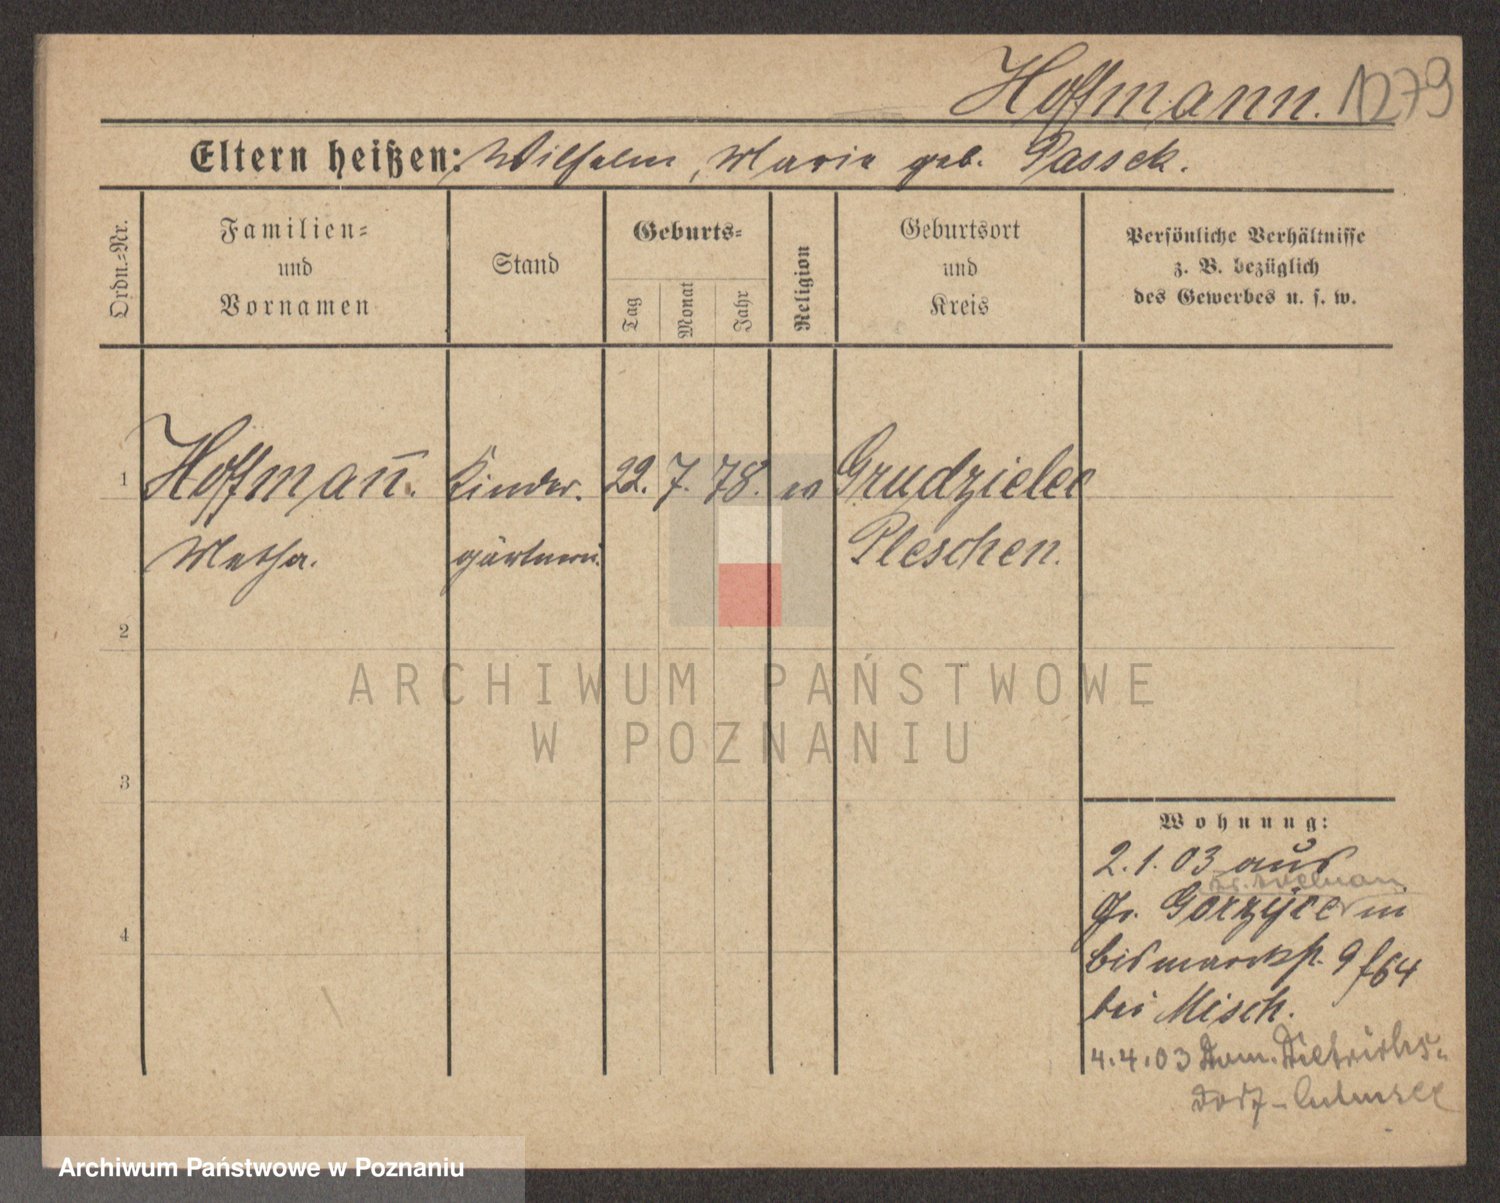 Hoffmann. 1279
Eltern heißen: Wilhelm, Maria geb. Passek.
Ordn.=Nr.
Familien=
und
Vornamen
Stand
Geburts=
Tag
Monat
Jahr
Religion
Geburtsort
und
Kreis
Persönliche Verhältnisse
z. B. bezüglich
des Gewerbes u. s. w.
1 Hoffmañ. Kinder. 22. 7. 78. ev Grudzielec
Metha. gärtnerin. Pleschen.
2
3
4
ARCHIWUM PAŃSTWOWE
W POZNANIU
Wohnung:
2.1.03 aus
Gr. Gorzyce in
Bismarckst. 9 f64
bei Misch.
4.4.03 Dom. Dietrichs-
Dorf - Culmsee
Archiwum Państwowe w Poznaniu